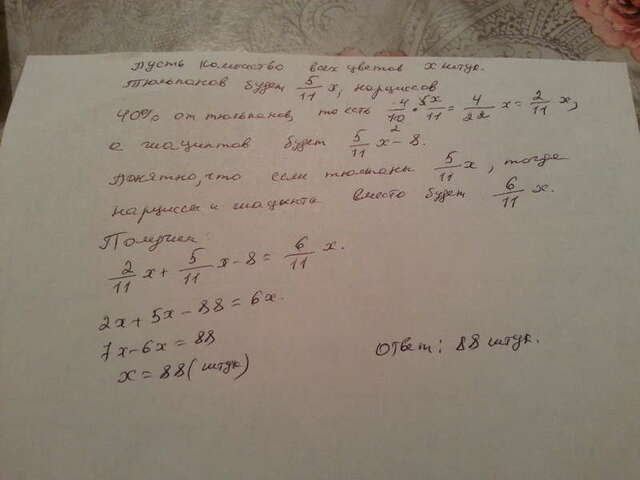 Пусть количество всех цветов x штук.
Тюльпанов будет 5/11 x, нарциссов
40% от тюльпанов, то есть 4/10 · 5x/11 = 4/22 x = 2/11 x,
а гиацинтов будет 5/11 x - 8.
Понятно, что если тюльпаны 5/11 x, тогда
нарциссы и гиацинта вместо будет 6/11 x.
Получим:
2/11 x + 5/11 x - 8 = 6/11 x.
2x + 5x - 88 = 6x.
7x - 6x = 88
x = 88 (штук)
Ответ: 88 штук.